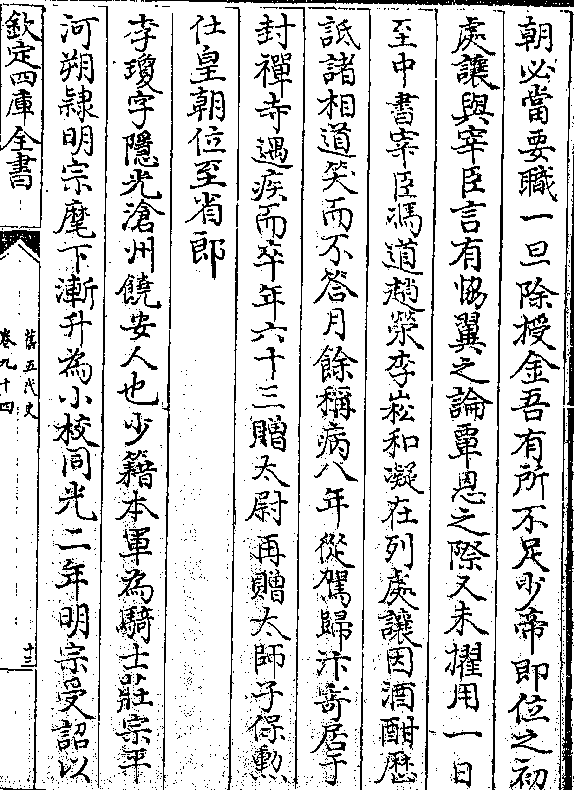 朝必當要職一旦除授金吾有所不足少帝即位之初
處讓與宰臣言有恊翼之論覃恩之際又未擢用一日
至中書宰臣馮道趙瑩李崧和凝在列處讓因酒酣歴
詆諸相道笑而不答月餘稱病八年從駕歸汴寄居于
封禪寺遇疾而卒年六十三贈太尉再贈太師子保勲
仕皇朝位至省郎
李瓊字隱光滄州饒安人也少籍本軍為騎士莊宗平
河朔隸明宗麾下漸升為小校同光二年明宗受詔以
欽定四庫全書
舊五代史
卷九十四
十三